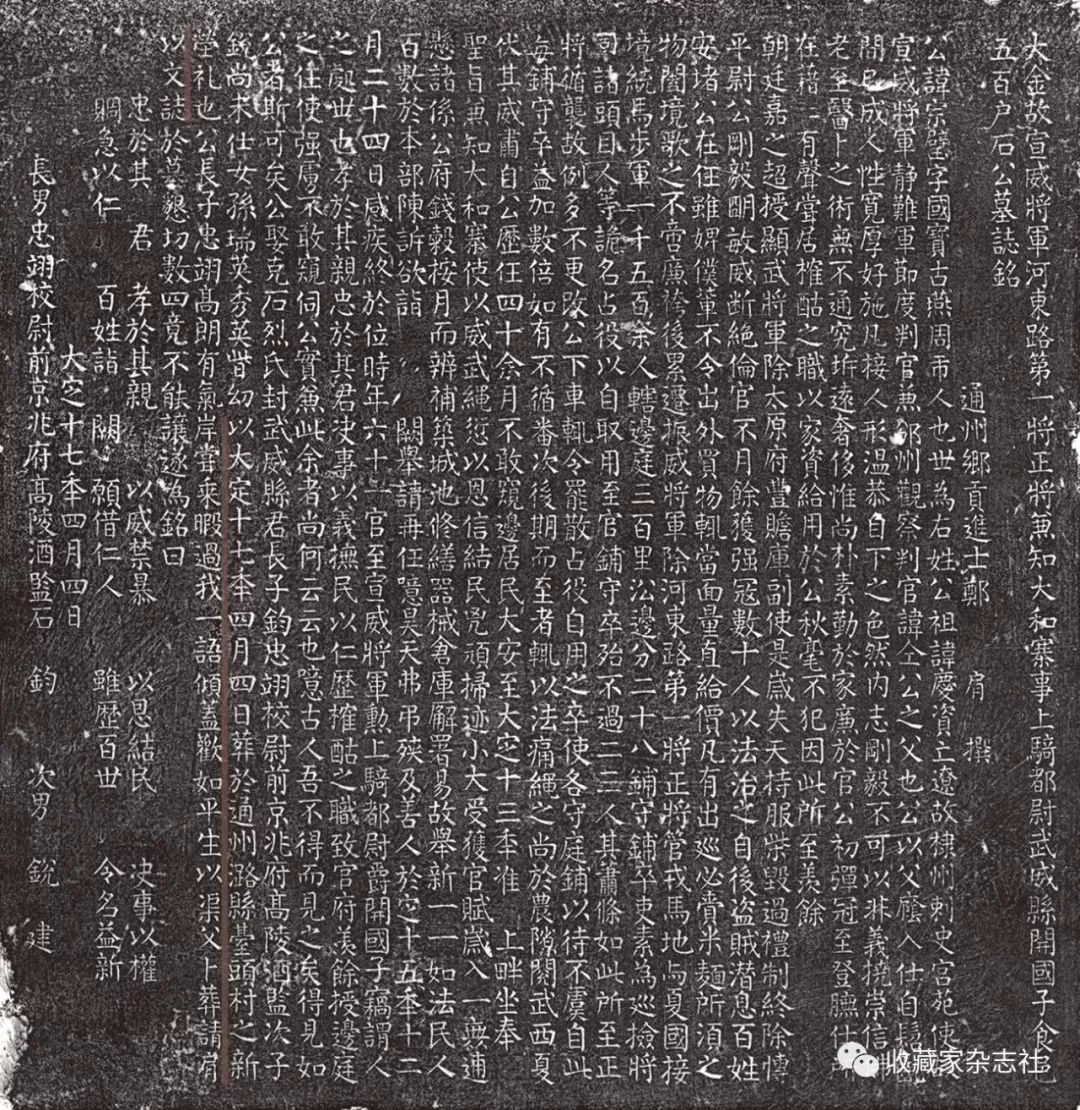 大金故宣威將軍河東路第一將正將兼知大和寨事上騎都尉武威縣開國子食邑
五百户石公墓誌銘
通州鄉貢進士鄭 肩 撰
公諱宗璧字國寶古燕周市人也世為右姓公祖諱慶資立遼故棣州刺史宮苑使
宣威將軍静難軍節度判官兼邠州觀察判官諱仝公之父也公以父廕入仕自髫
間已成人性寛厚好施凡接人形温恭自下之色然内志剛毅不可以非義撓崇信
老至醫卜之術無不通究圻遠奢侈惟尚朴素勤於家廉於官公初彈冠至登膴仕所
在藉二有聲甞居榷酤之職以家資給用於公秋毫不犯因此所至羨餘
朝廷嘉之超授顯武將軍除太原府豐贍庫副使是嵗失天持服柴毀過禮制終除慱
平尉公剛毅眀敏威断絶倫官不月餘獲强冦數十人以法治之自後盗賊潜息百姓
安堵公在任雖婢僕軰不令出外買物輒當面量直給價凡有出巡必賞米麵所湏之
物闔境歌之不啻廉袴後累遷振威將軍除河東路第一將正將管戎馬地与夏國接
境統馬步軍一千五百余人轄邊庭三百里㳂邊分二十八鋪守鋪卒吏素為巡撿將
司諸頭目人等詭名占役以自取用至官鋪守卒殆不過二三人其肅條如此所至正
將循襲故例多不更改公下車輒令罷散占役自用之卒使各守庭鋪以待不虞自此
每鋪守卒益加數倍如有不循番次後期而至者輒以法痛繩之尚於農隙閱武西夏
伏其威肅自公歷任四十余月不敢窺邊居民大安至大定十三秊准 上畔坐奉
聖旨兼知大和寨使以威武繩愆以恩信結民兇頑掃迹小大受獲官賦嵗入一無逋
懸諸係公府錢穀桉月而辨補築城池修繕器械倉庫廨署易故舉新一一如法民人
百數於本部陳訴欲詣 闕舉請再任噫昊天弗弔殃及善人於定十五秊十二
月二十四日感疾終於位時年六十一官至宣威將軍勲上騎都尉爵開國子竊謂人
之處世也孝於其親忠於其君决事以義撫民以仁歷榷酤之職致官府羡餘授邊庭
之任使强虜不敢窺伺公實兼此余者尚何云云也噫古人吾不得而見之矣得見如
公者斯可矣公娶克石烈氏封武威縣君長子鈞忠翊校尉前京兆府髙陵酒監次子
銳尚未仕女孫瑞英秀英皆幼以大定十七秊四月四日葬於通州潞縣臺頭村之新
塋礼也公長子忠翊髙朗有氣岸甞乘暇過我一語傾蓋歡如平生以渠父卜葬請肩
以文誌於墓懇切數四竟不能讓遂為銘曰
忠於其君 孝於其親 以威禁暴 以恩結民 决事以權
賙急以仁 百姓詣闕 願借仁人 雖歷百世 令名益新
大定十七秊四月四日
長男忠翊校尉前京兆府髙陵酒監石 鈞 次男 銳 建
收藏家杂志社